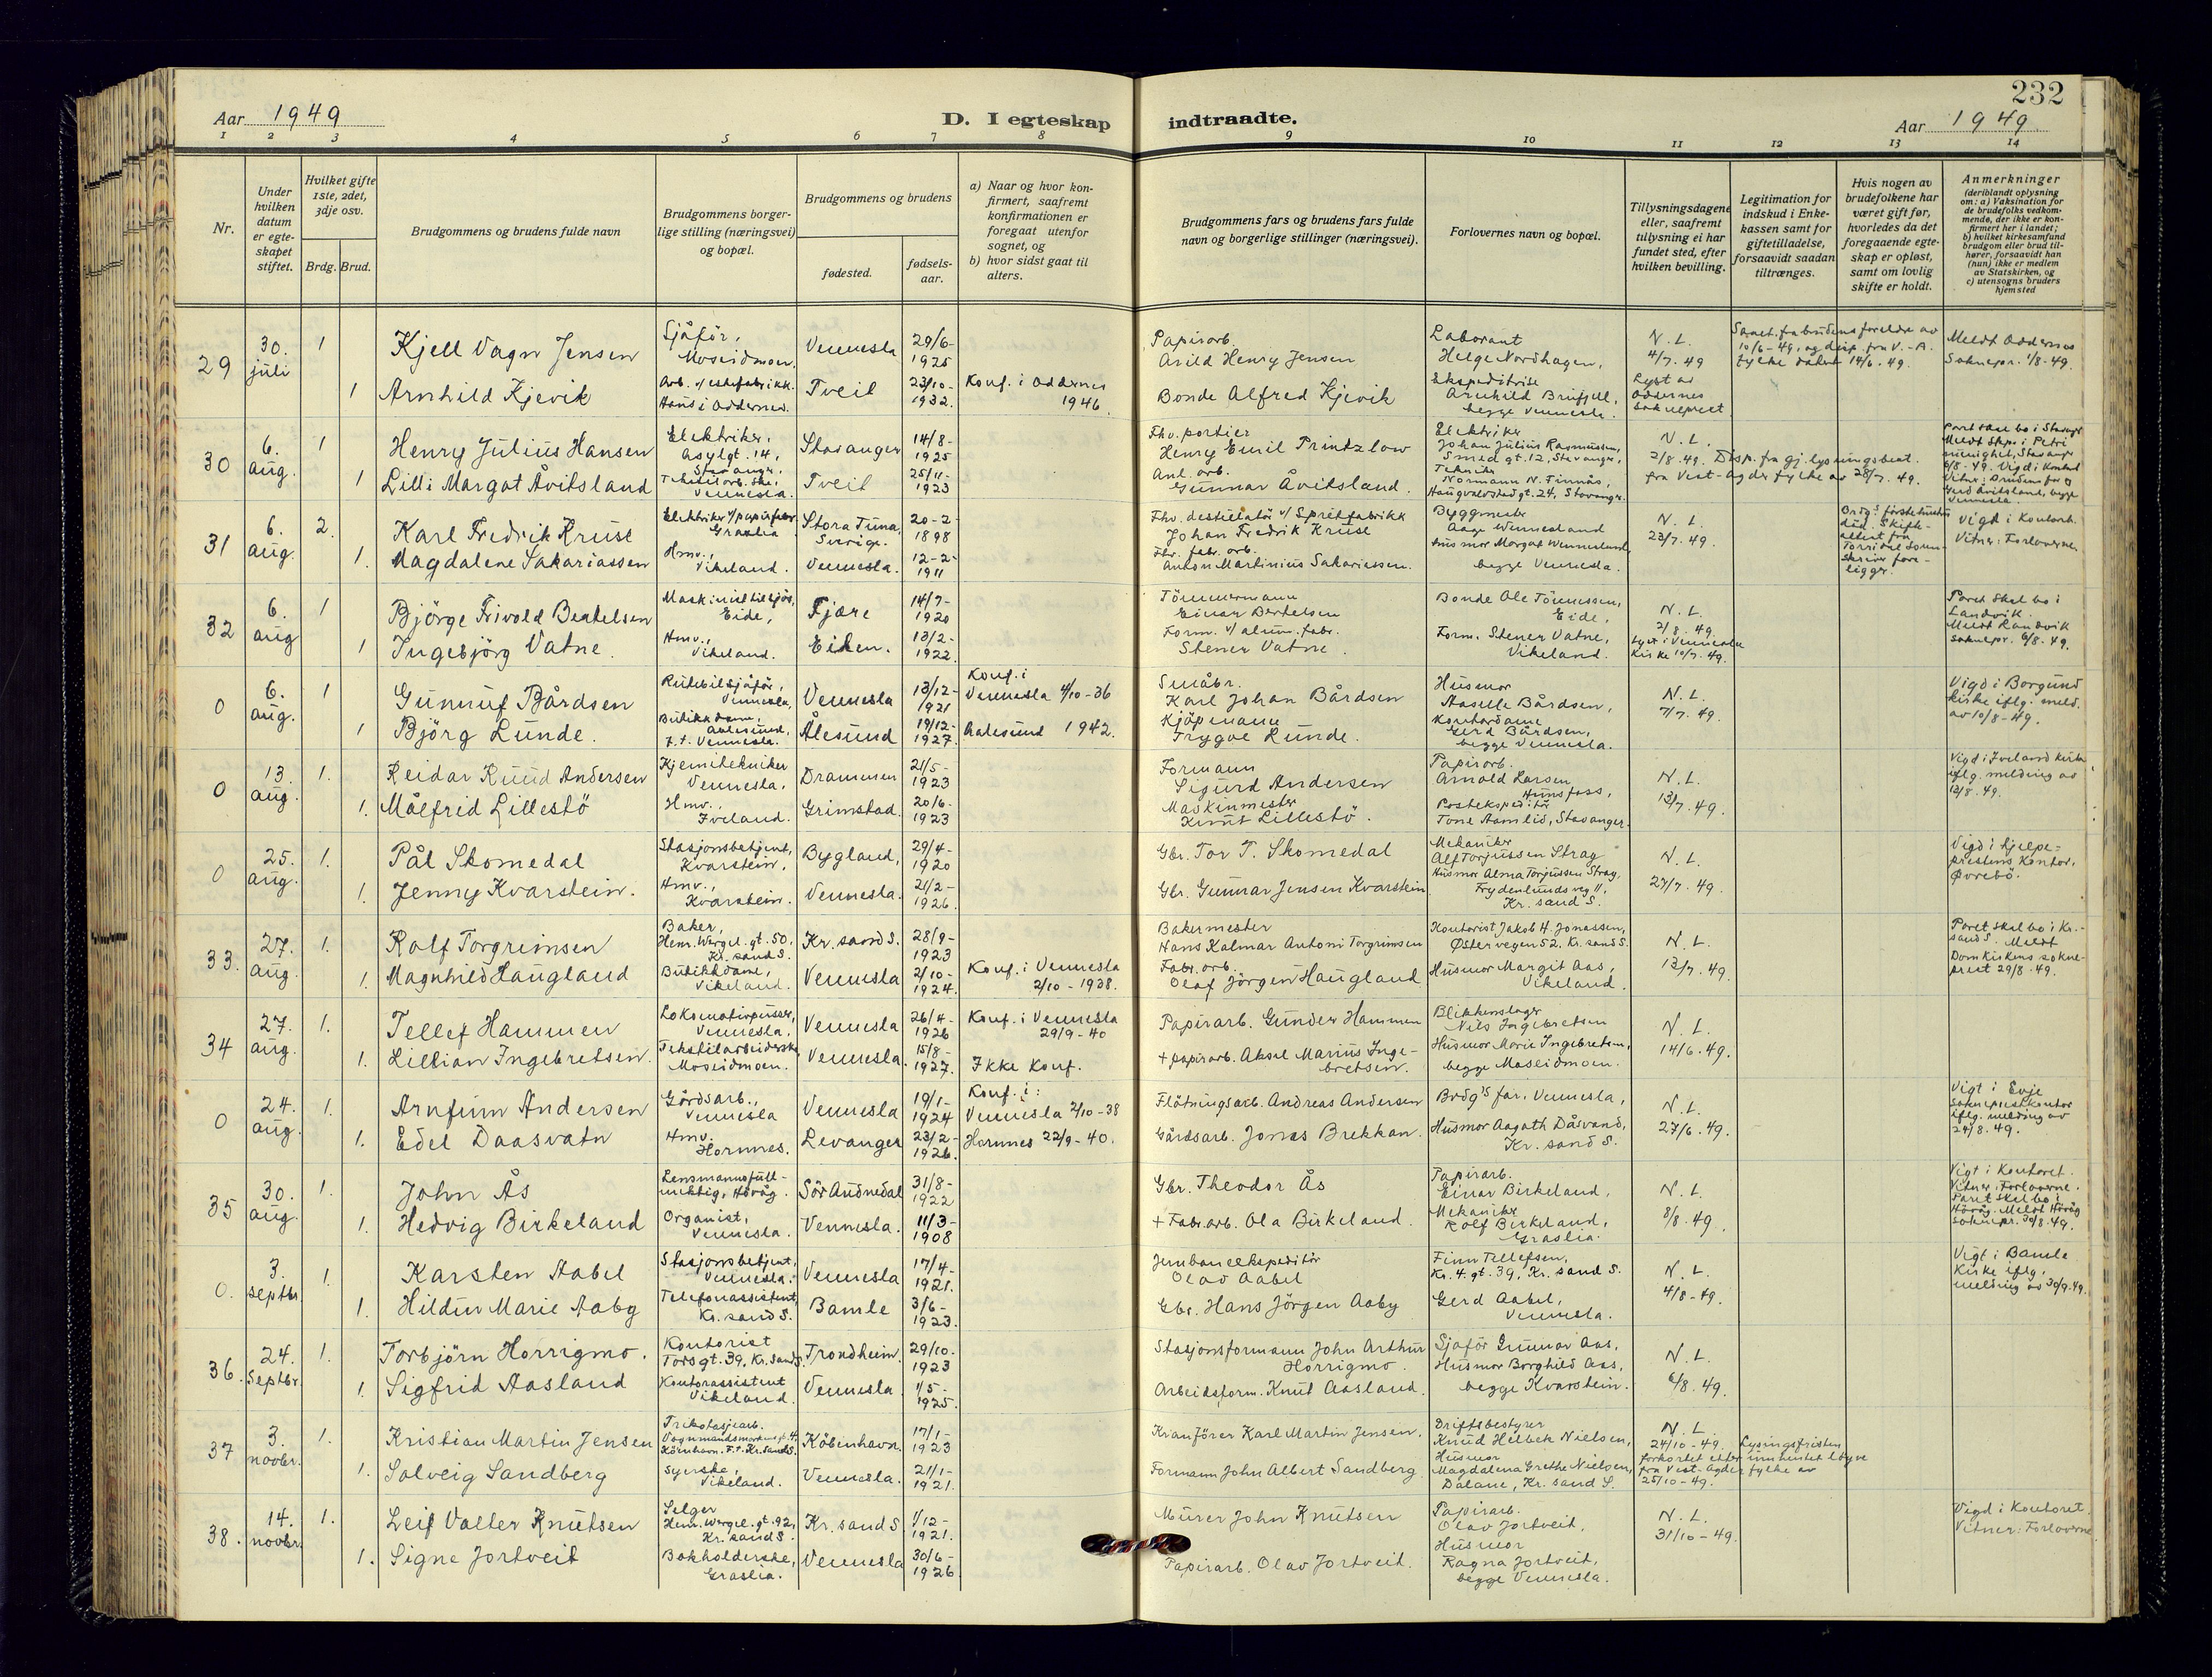 232
Aar 1949
D. I egteskap indtraadte.
Aar 1949
1 2 3 4 5 6 7 8 9 10 11 12 13 14
Nr.
Under hvilken datum er egte-skapet stiftet.
Hvilket gifte 1ste, 2det, 3dje osv.
Brdg. Brud.
Brudgommens og brudens fulde navn
Brudgommens borger-
lige stilling (næringsvei)
og bopæl.
Brudgommens og brudens
fødested.
fødsels-
aar.
a) Naar og hvor kon-
firmert, saafremt
konfirmationen er
foregaat utenfor
sognet, og
b) hvor sidst gaat til
alters.
Brudgommens fars og brudens fars fulde
navn og borgerlige stillinger (næringsvei).
Forlovernes navn og bopæl.
Tillysningsdagene
eller, saafremt
tillysning ei har
fundet sted, efter
hvilken bevilling.
Legitimation for
indskud i Enke-
kassen samt for
giftetilladelse,
forsaavidt saadan
tiltrænges.
Hvis nogen av
brudefolkene har
været gift før,
hvorledes da det
foregaaende egte-
skap er opløst,
samt om lovlig
skifte er holdt.
Anmerkninger
(deriblandt oplysning
om: a) Vaksination for
de brudefolks vedkom-
mende, der ikke er kon-
firmert her i landet;
b) hvilket kirkesamfund
brudgom eller brud til-
hører, forsaavidt han
(hun) ikke er medlem
av Statskirken, og
c) utensogns bruders
hjemsted
29 30. juli 1 Kjell Vagn Jensen Sjåför, Moseidmoen. Vennesla 29/6-1925 Papirarb. Arild Henry Jensen Laborant Helge Nordhagen, N. L. 4/7. 49 Samt. fra brudens foreldre av 10/6-49, og disp. fra V.-A. fylke datert 14/6. 49. Meldt Oddernes Soknepr. 1/8-49.
1 Arnhild Kjevik Tveit 23/10-1932. Konf. i Oddernes 1946. Bonde Alfred Kjevik Ekspeditrise begge Vennesla. Lyst av Oddernes sokneprest
30 6. aug. 1 Henry Julius Hansen Elektriker, Asylgt. 14, Stavanger, Stavanger 14/8-1925 Fhv. portier Henry Emil Printzlow Elektriker Johan Julius Rasmussen, Smedgt. 12, Stavanger, N. L. 2/8. 49. Disp. fra gj. lysningsbest. fra Vest-Agder fylke av 28/7. 49.
1 Lilli Margot Åvitsland Vennesla. Tveit 25/11-1923 Anl. arb. Gunnar Åvitsland. Tekniker Normann N. Finnås, Stavanger.
31 6. aug. 2. Karl Fredrik Kruse Elektriker v/papirfabr. Graslia Stora Tuna, Sverige. 20-2-1898 Fhv. destillatör v/Spritfabrikk Johan Fredrik Kruse Byggmester Aage Wennesland N. L. 23/7. 49. Vigd i Kontoret. Vitner: Forloverne.
1. Magdalene Sakariassen Hmv., Vikeland. Vennesla. 12-2-1911 Fhv. fabr. arb. Anton Martinius Sakariassen. Husmor Margot Wennesland, begge Vennesla.
32 6. aug 1 Björge Frivold Bertelsen Eide, Fjære 14/7-1920 Tömmermann Einar Bertelsen Bonde Ole Tönnessen, Eide, N. L. 2/8. 49. Paret skal bo i Landvik. Meldt Landvik soknepr. 6/8. 49.
1 Ingebjörg Vatne. Hmv., Vikeland. Eiken. 13/2-1922. Form. v/alum. fabr. Stener Vatne. Form. Stener Vatne, Vikeland. Lyst i Vennesla Kirke 10/7. 49.
0 6. aug. 1 Gunnuf Bårdsen Rutebilsjåför, Vennesla, Vennesla 13/12-1921 Konf. i Vennesla 4/10-36 Småbr. Karl Johan Bårdsen Husmor Aaselle Bårdsen, N. L. 7/7. 49. Vigd i Borgund kirke iflg. meld. av 10/8-49.
1 Björg Lunde. Aalesund, f. t. Vennesla. Ålesund 19/12-1927. Aalesund 1942. Kjöpmann Trygve Lunde. Kontordame Gerd Bårdsen, begge Vennesla.
0 13. aug. 1. Reidar Ruud Andersen Kjemitekniker Vennesla, Drammen 21/5-1923 Formann Sigurd Andersen Papirarb. Arnold Larsen, Hunsfoss, N. L. 13/7. 49. Vigd i Iveland kirke iflg. melding av 13/8. 49.
1. Målfrid Lillestö Hmv., Iveland. Grimstad. 20/6-1923 Maskinmester Knut Lillestö. Postekspeditör Tone Aamlid, Stavanger.
0 25. aug. 1. Pål Skomedal Stasjonsbetjent, Kvarstein, Bygland, 29/4-1920 Gbr. Tor T. Skomedal Mekaniker Alf Torjussen Strag N. L. 27/7. 49. Vigd i hjelpe-prestens Kontor, Øvrebö.
1. Jenny Kvarstein. Hmv., Kvarstein. Vennesla. 21/2-1926. Gbr. Gunnar Jensen Kvarstein Husmor Alma Torjussen Strag, Frydenlundsveg 11, Kr.sand S.
33. 27. aug. 1. Rolf Torgrimsen Baker, Henr. Wergel. gt. 50, Kr.sand S. Kr.sand S. 28/9-1923 Bakermester Hans Kalmar Antoni Torgrimsen Kontorist Jakob H. Jonassen, Østervegen 52, Kr.sand S. N. L. 13/7. 49. Paret skal bo i Kr.-sand S. Meldt Domkirkens sokne-prest 29/8. 49.
1. Magnhild Haugland Butikkdame, Vikeland. Vennesla 2/10-1924. Konf. i Vennesla 2/10-1938. Fabr. arb. Olaf Jörgen Haugland Husmor Margit Aas, Vikeland.
34 27. aug. 1. Tellef Hammen Lokomotivpusser, Vennesla, Vennesla 26/4-1926 Konf. i Vennesla 29/9-40 Papirarb. Gunder Hammen Blikkenslager Nils Ingebretsen N. L. 14/6. 49.
1. Lillian Ingebretsen. Tekstilarbeiderske Moseidmoen. Vennesla. 15/8-1927. Ikke Konf. + papirarb. Aksel Marius Inge-bretsen. Husmor Marie Ingebretsen, begge Moseidmoen.
0 24. aug. 1. Arnfinn Andersen Gårdsarb., Vennesla Vennesla 19/1-1924 Konf. i: Vennesla 2/10-38 Flötningsarb. Andreas Andersen Brdg's far, Vennesla, N. L. 27/6. 49. Vigt i Evje sokneprestkontor iflg. melding av 24/8. 49.
1. Edel Daasvatn Hmv. Hornnes. Levanger 23/2-1926. Hornnes 22/9-40. Gårdsarb. Jonas Brekkan. Husmor Aagath Dåsvand, Kr.sand S.
35 30. aug. 1. John Ås Lensmannsfull-mektig, Høvåg. Sör Audnedal 31/8-1922 Gbr. Theodor Ås Papirarb. Einar Birkeland, N. L. 8/8. 49. Vigt i Kontoret. Vitner: Forloverne. Paret skal bo i Høvåg. Meldt Høvåg soknepr. 30/8. 49.
1. Hedvig Birkeland Organist, Vennesla. Vennesla. 11/3-1908 + Fabr.arb. Ola Birkeland. Mekaniker Rolf Birkeland, Graslia.
0. 3. septbr. 1. Karsten Aabel Stasjonsbetjent, Vennesla. Vennesla 17/4-1921. Jernbaneekspeditör Olav Aabel Finn Tellefsen, Kr. 4. gt. 39, Kr.sand S. N. L. 4/8-49. Vigt i Bamle Kirke iflg. melding av 30/9. 49.
1. Hildur Marie Aaby Telefonassistent, Kr.sand S. Bamle 3/6-1923. Gbr. Hans Jörgen Aaby Gerd Aabel, Vennesla.
36. 24. Septbr. 1. Torbjörn Horrigmo. Kontorist Torsgt. 39, Kr.sand S. Trondheim. 29/10-1923 Stasjonsformann John Arthur Horrigmo. Sjåför Gunnar Aas, N. L. 6/8. 49.
1. Sigfrid Aasland Kontorassistent Vikeland. Vennesla 1/5-1925. Arbeidsform. Knut Aasland. Husmor Borghild Aas, begge Kvarstein.
37 3. novbr. 1. Kristian Martin Jensen Trikotasjearb. F. t. Kr.sand S. Köbenhavn. 17/1-1923 Kranförer Karl Martin Jensen. Driftsbestyrer Knud Helbek Nielsen, N. L. 24/10-49. Lysingsfristen forkortet etter innhentet löyve fra Vest-Agder fylke av 25/10-49.
1. Solveig Sandberg Syerske, Vikeland. Vennesla. 21/1-1921. Formann John Albert Sandberg Husmor Magdalena Grethe Nielsen, Dalane, Kr.sand S.
38. 14. novbr. 1. Leif Valter Knutsen Selger Henr. Wergel. gt. 92, Kr.sand S. Kr.sand S 1/12-1921. Murer John Knutsen Papirarb. Olav Jortveit, N. L. 31/10-49. Vigd i Kontoret. Vitner: Forloverne
1. Signe Jortveit Bokholderske, Graslia. Vennesla 30/6-1926 Papirarb. Olav Jortveit. Husmor Ragna Jortveit, begge Vennesla.